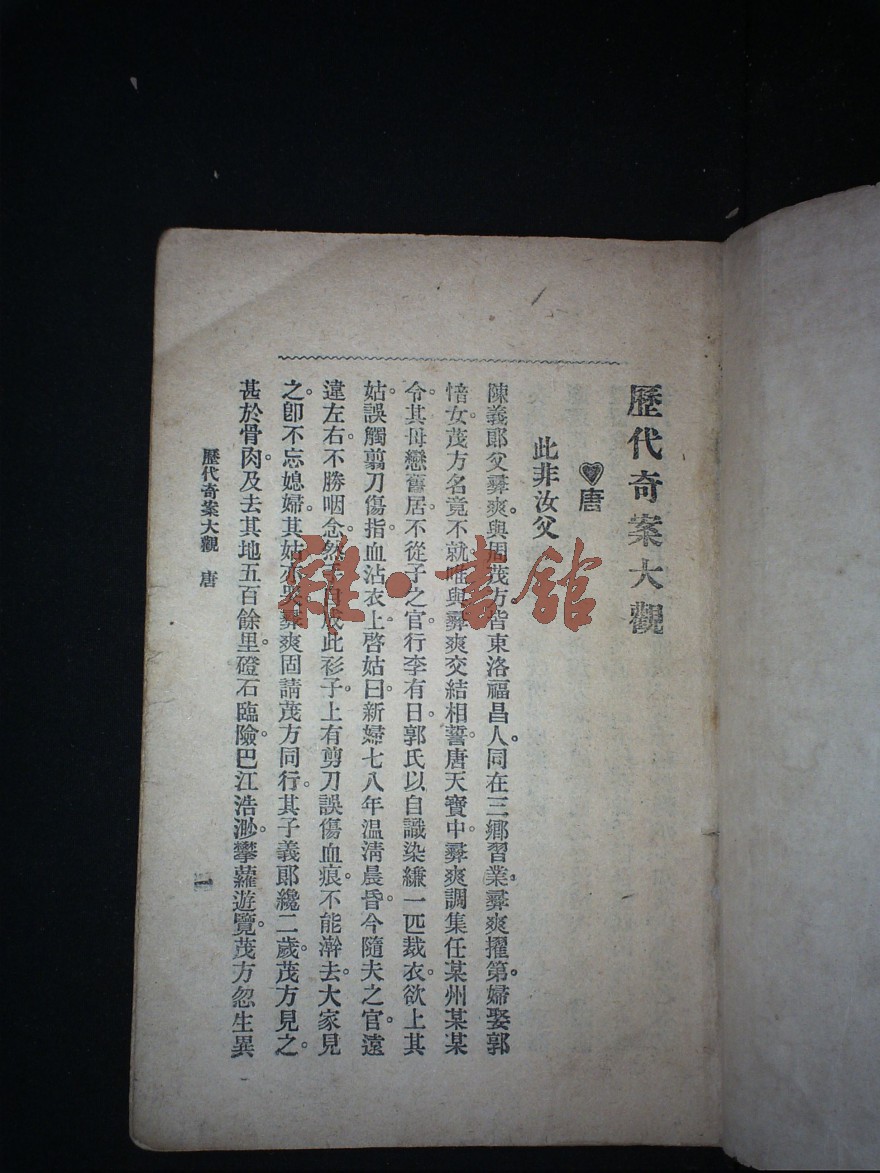 歷代奇案大觀
唐
此非汝父
陳義郎父彝爽與周茂方皆東洛福昌人。同在三鄉習業。彝爽擢第。婦娶郭
愔女。茂方名竟不就。唯與彝爽交結相誓。唐天寶中。彝爽調集任某州某某
令。其母戀舊居。不從子之官。行李有日。郭氏以自識染縑一匹裁衣。欲上其
姑。誤觸翦刀傷指。血沾衣上。啓姑曰。新婦七八年温凊晨昏。今隨夫之官。遠
違左右。不勝咽念。然 此衫子。上有剪刀誤傷血痕。不能澣去。大家見
之。卽不忘媳婦。其姑亦哭。彝爽固請茂方同行。其子義郎纔二歲。茂方見之。
甚於骨肉。及去其地五百餘里。磴石臨險。巴江浩渺。攀蘿遊覽。茂方忽生異
歷代奇案大觀 唐
一
雜·書館